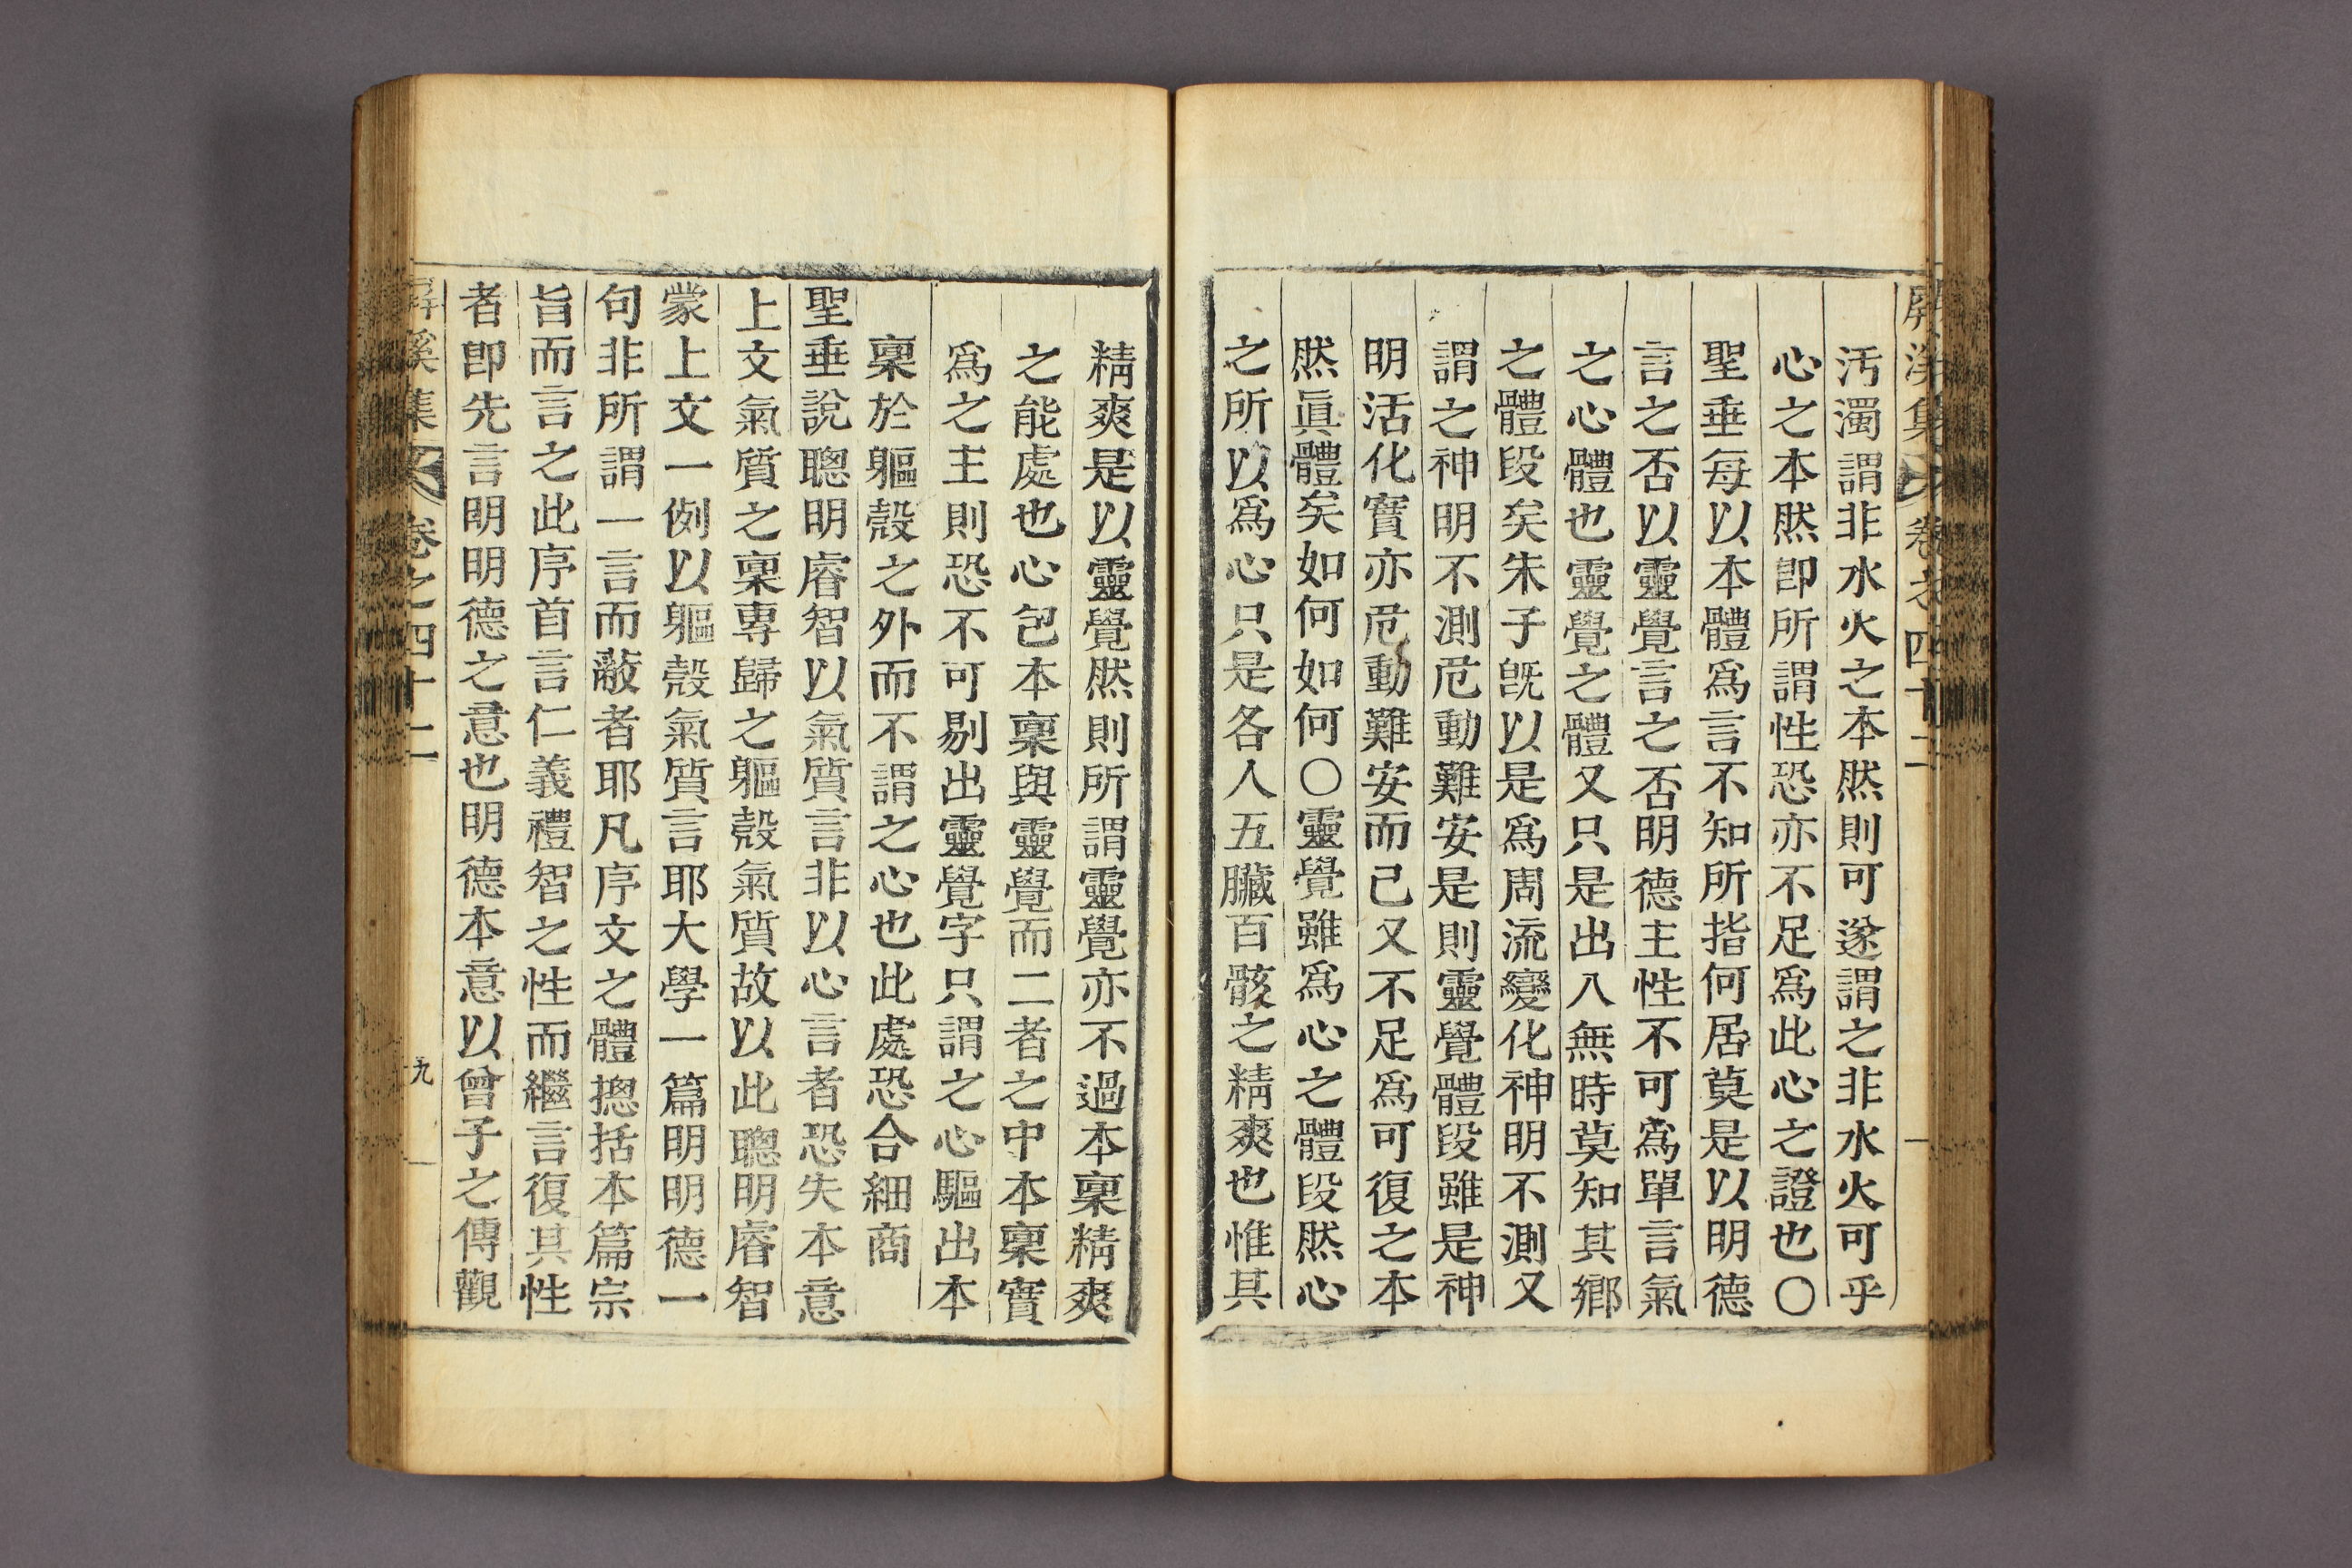 屛溪集 卷之四十二
汚濁謂非水火之本然則可遂謂之非水火可乎
心之本然卽所謂性恐亦不足爲此心之證也〇
聖垂每以本體爲言不知所指何居莫是以明德
言之否以靈覺言之否明德主性不可爲單言氣
之心體也靈覺之體又只是出入無時莫知其鄕
之體段矣朱子旣以是爲周流變化神明不測又
謂之神明不測危動難安是則靈覺體段雖是神
明活化實亦危動難安而已又不足爲可復之本
然眞體矣如何如何〇靈覺雖爲心之體段然心
之所以爲心只是各人五臟百骸之精爽也惟其
精爽是以靈覺然則所謂靈覺亦不過本稟精爽
之能處也心包本稟與靈覺而二者之中本稟實
爲之主則恐不可剔出靈覺字只謂之心驅出本
稟於軀殼之外而不謂之心也此處恐合細商
聖垂說聰明睿智以氣質言非以心言者恐失本意
上文氣質之稟專歸之軀殼氣質故以此聰明睿智
蒙上文一例以軀殼氣質言耶大學一篇明明德一
句非所謂一言而蔽者耶凡序文之體摠括本篇宗
旨而言之此序首言仁義禮智之性而繼言復其性
者卽先言明明德之意也明德本意以曾子之傳觀
屛溪集 卷之四十二 九